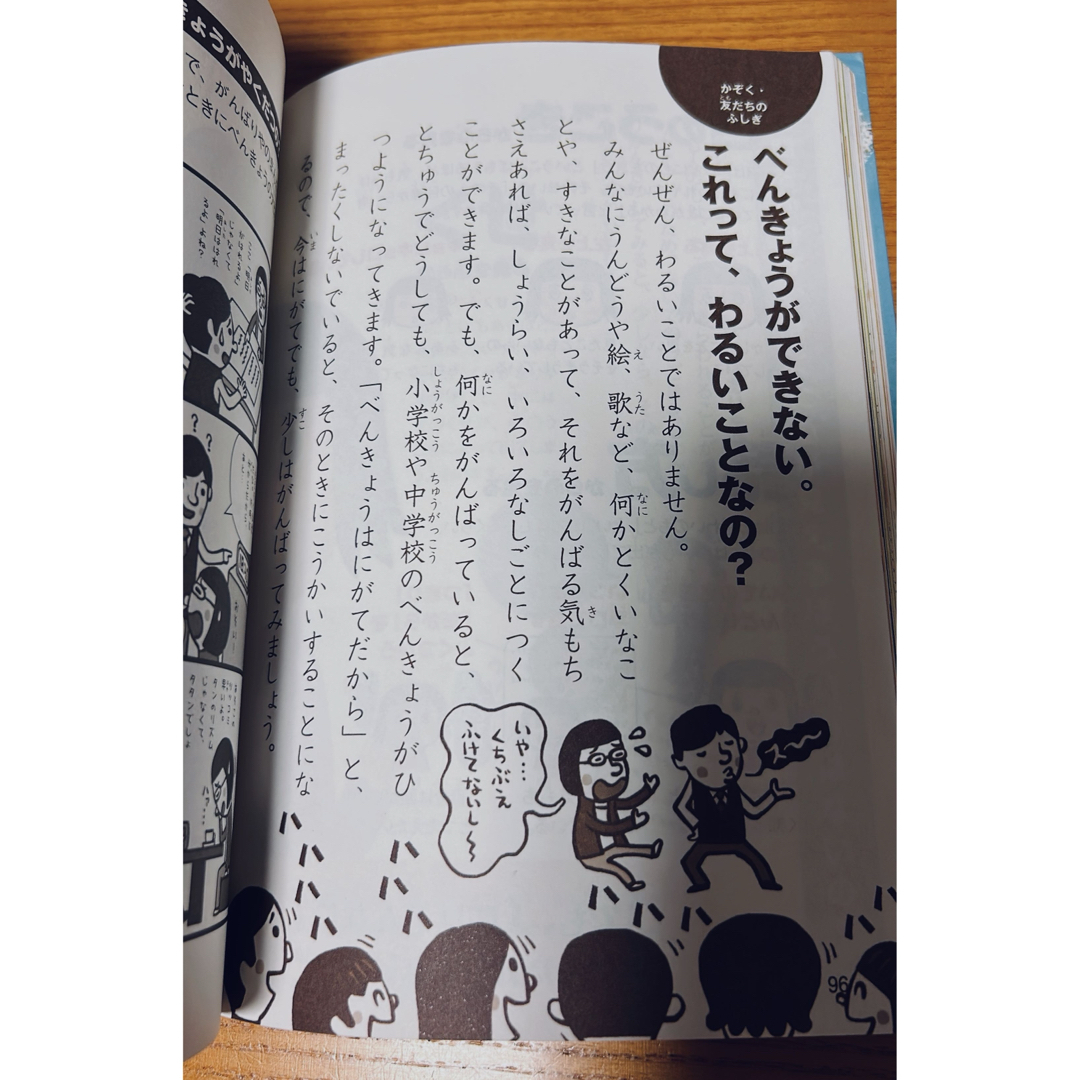 かぞく・
友だちの
ふしぎ
べんきょうができない。
これって、わるいことなの？
ぜんぜん、わるいことではありません。
みんなにうんどうや絵、歌など、何かとくいなこ
とや すきなことがあって、それをがんばる気もち
さえあれば、しょうらい、いろいろなしごとにつく
ことができます。でも、何かをがんばっていると、
とちゅうでどうしても、小学校や中学校のべんきょうがひ
つようになってきます。「べんきょうはにがてだから」と、
まったくしないでいると、そのときにこうかいすることにな
るので、今はにがてでも、少しはがんばってみましょう。
いや…
くちぶえ
ふけてないし〜
ハハ
ハハ
ハハ
ハハ
ハハ
ハハ
ハハ
ハハ
96
で、がんばりや
ときにべんきょう
じゃなくて
「明日は
るよ」よね？
？？
じゃなくて、
タタンでしょ
ハァ…